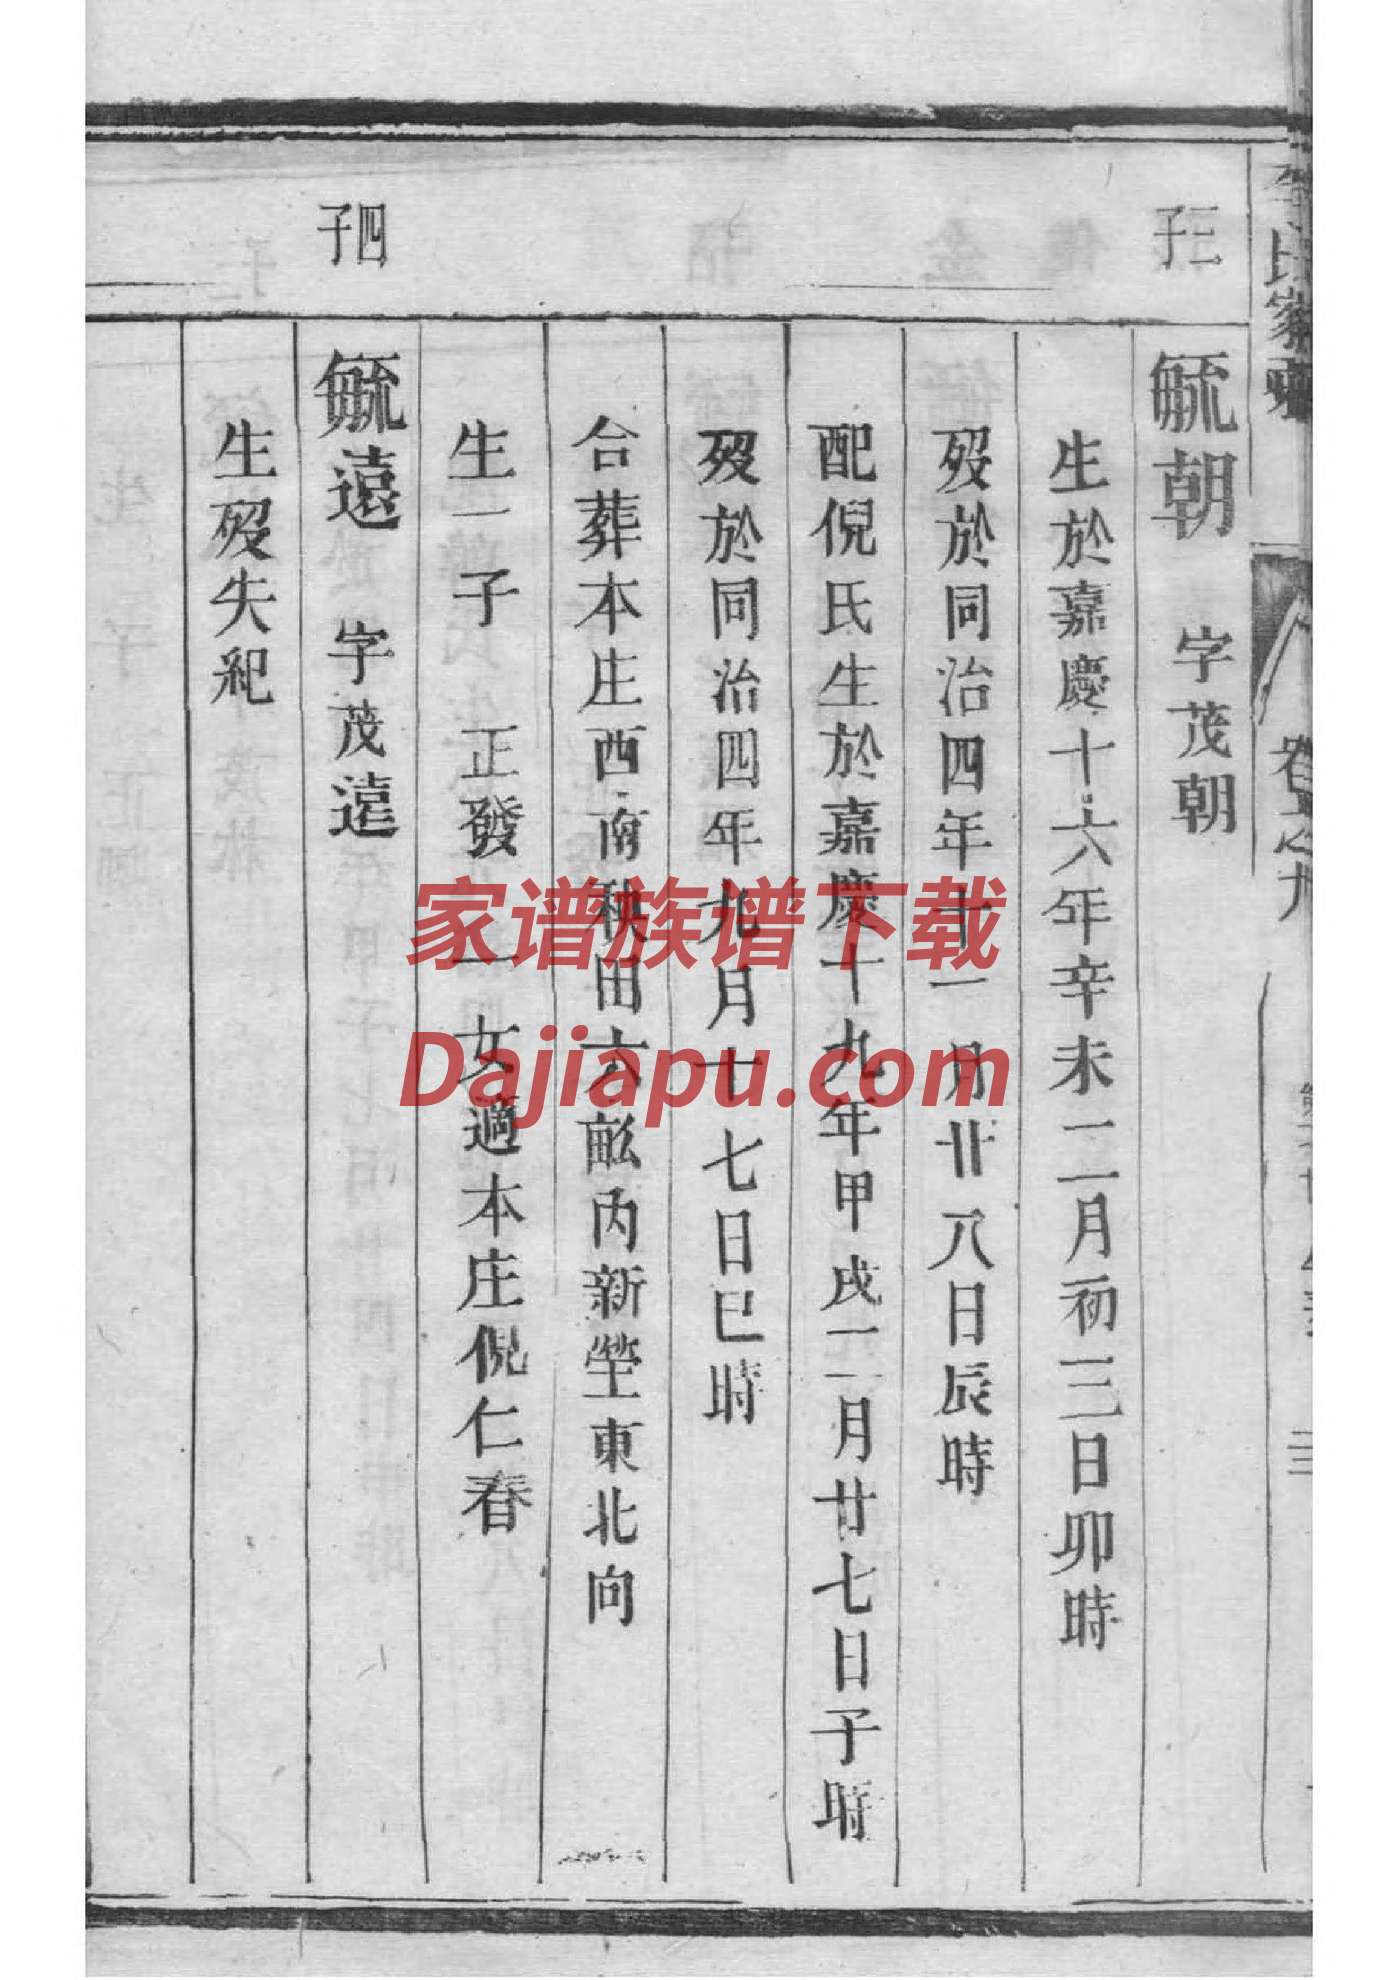 李氏家乘
卷五之九
三子
毓朝 字茂朝
生於嘉慶十六年辛未二月初三日卯時
歿於同治四年十一月廿八日辰時
配倪氏生於嘉慶十九年甲戌二月廿七日子時
歿於同治四年九月十七日巳時
合葬本庄西南秧田六畝內新塋東北向
生一子 正發 一女適本庄倪仁春
四子
毓遠 字茂遠
生歿失紀
家谱族谱下载
Dajiapu.com